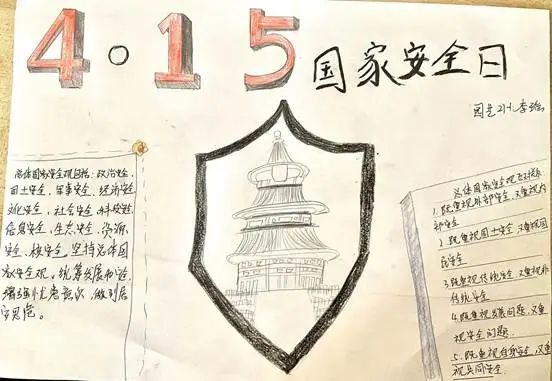 4·15 国家安全日
总体国家安全观包括：政治安全、
国土安全、军事安全、经济安全
文化安全、社会安全、科技安全
信息安全、生态安全、资源
安全、核安全，坚持总体国
家安全观，统筹发展和安全，
增强忧患意识，做到居
安思危。
总体国家安全观五对关系
1.既重视外部安全，又重视内
部安全
2.既重视国土安全，又重视国
民安全
3.既重视传统安全，又重视非
传统安全
4.既重视发展问题，又重
视安全问题
5.既重视自身安全，又重
视共同安全.